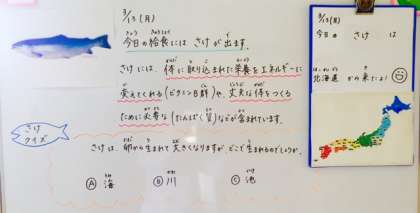 3/13(月)
今日の給食には さけが 出ます。
さけには、体に取り込まれた栄養をエネルギーに
変えてくれる(ビタミンB群)や、丈夫な体をつくる
ために必要な(たんぱく質)などが含まれています。
さけクイズ
さけは、卵から生まれて大きくなりますが どこで 生まれるのでしょうか。
Ⓐ 海 Ⓑ 川 Ⓒ 池
3/13(月)
今日の さけ は
北海道 から来たよ!